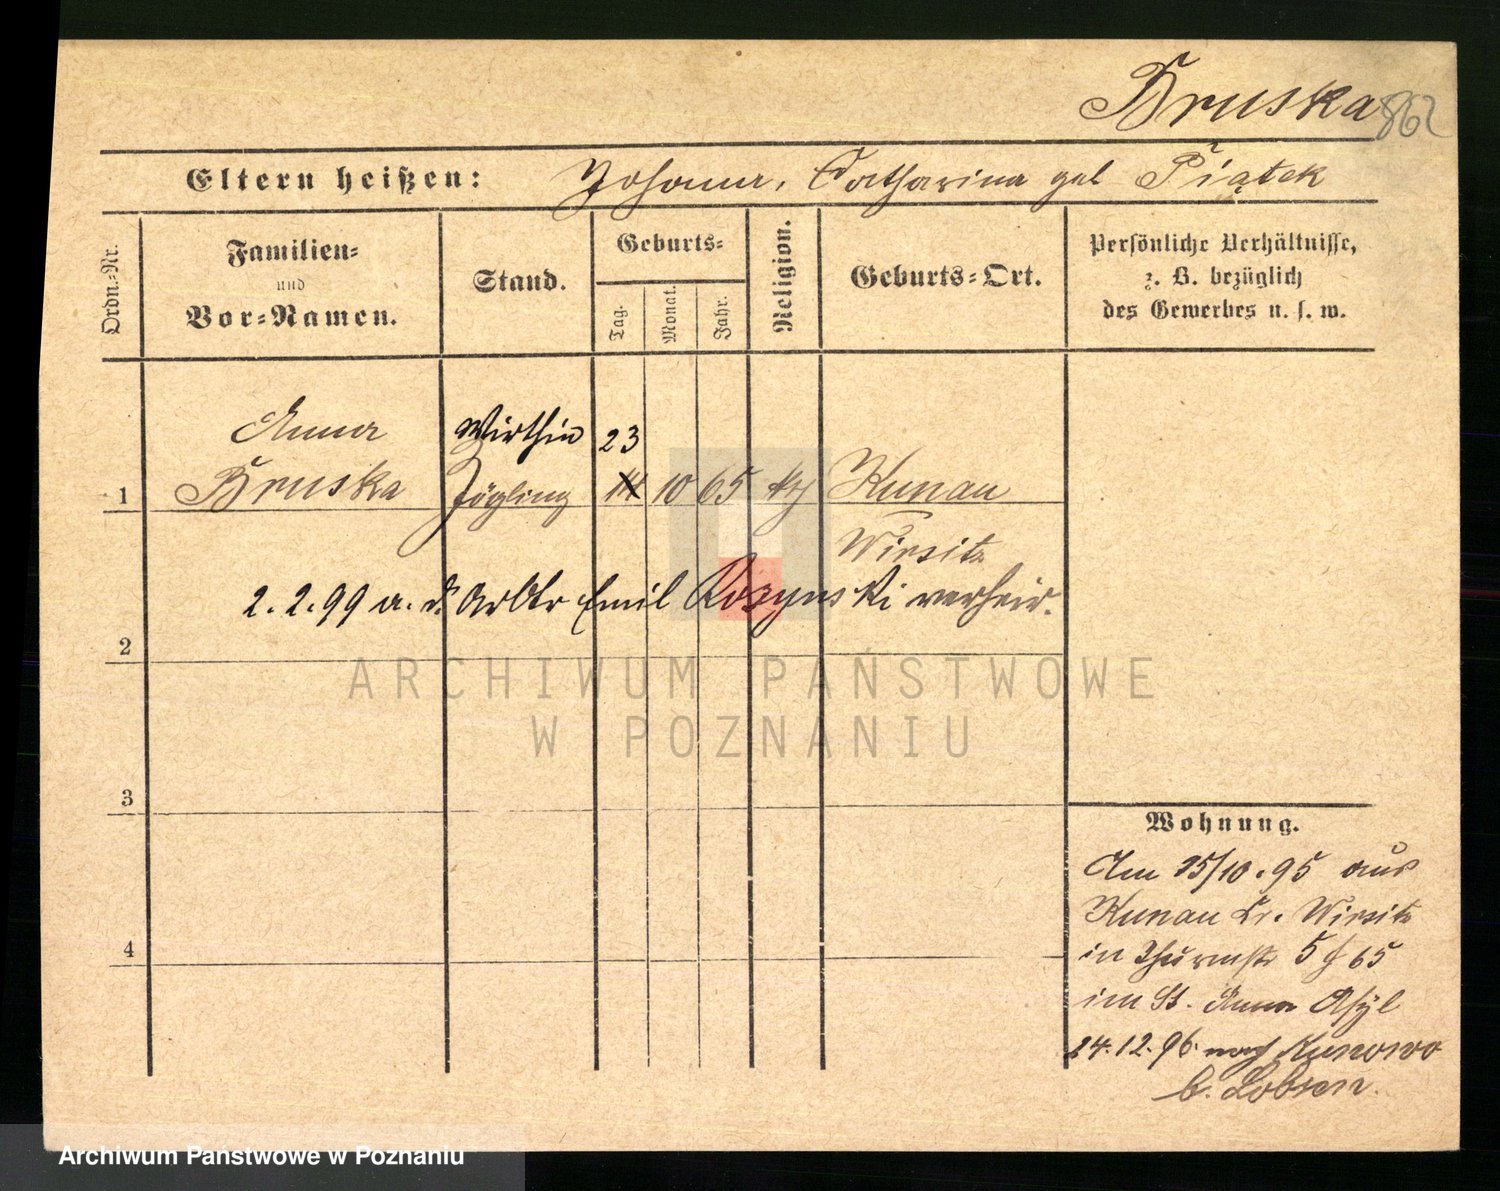 Bruska 862
Eltern heißen: Johann, Catharina geb Piątek
Ordn.-Nr.
Familien-
und
Vor-Namen.
Stand.
Geburts-
Tag.
Monat.
Jahr.
Religion.
Geburts-Ort.
Persönliche Verhältnisse,
z. B. bezüglich
des Gewerbes u. s. w.
Anna Wirthin 23
1 Bruska Zögling 14 10 65 Kunau
Wirsitz
2.2.99 a. d. Arbtr Emil Rozynski verheir.
2
ARCHIWUM PAŃSTWOWE
W POZNANIU
3
Wohnung.
Am 15/10.95 aus
Kunau Kr. Wirsitz
in Thurmstr 5 65
im St. Anna Asyl
4
24.12.96 nach Kunowo
b. Lobsen.
Archiwum Państwowe w Poznaniu